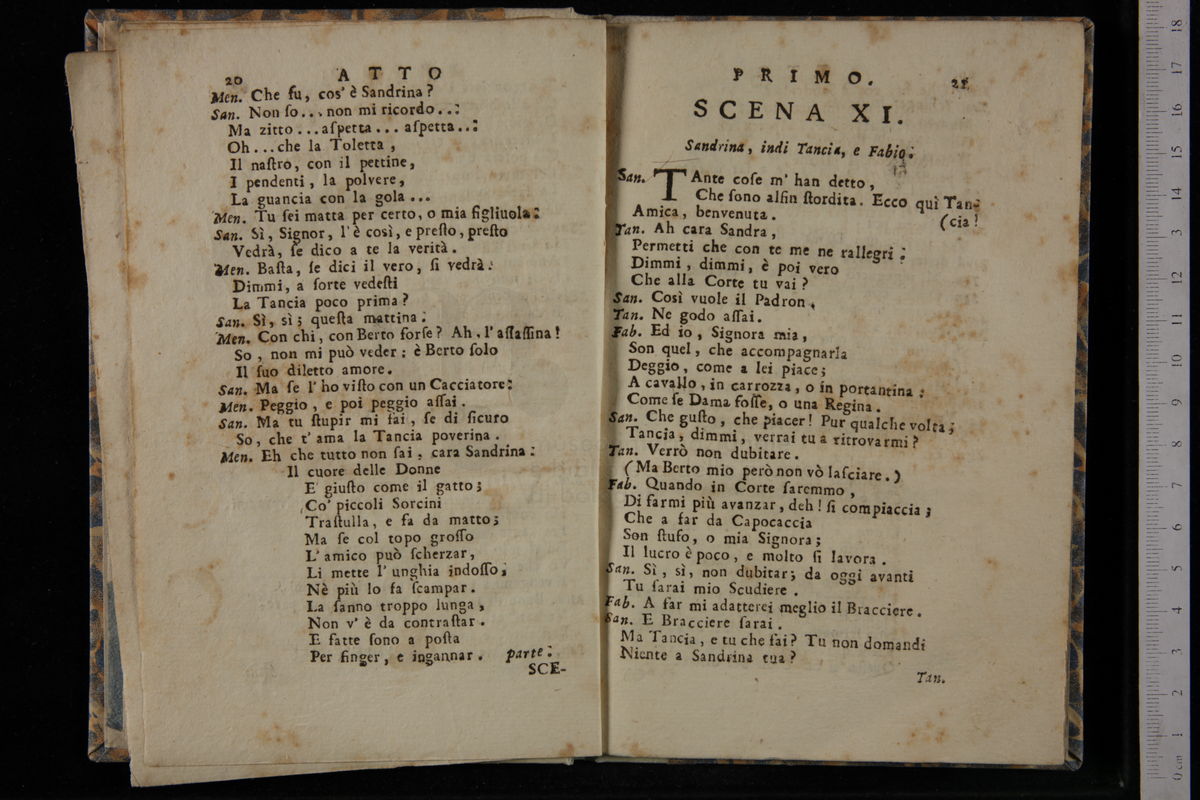 20 ATTO
Men. Che fu, cos' è Sandrina?
San. Non ſo... non mi ricordo..:
Ma zitto...aſpetta... aſpetta..:
Oh...che la Toletta,
Il naſtro, con il pettine,
I pendenti, la polvere,
La guancia con la gola...
Men. Tu ſei matta per certo, o mia figliuola:
San. Sì, Signor, l' è così, e preſto, preſto
Vedrà, ſe dico a te la verità.
Men. Baſta, ſe dici il vero, ſi vedrà.
Dimmi, a ſorte vedeſti
La Tancia poco prima?
San. Sì, sì; queſta mattina.
Men. Con chi, con Berto forſe? Ah, l' aſſaſſina!
So, non mi può veder; è Berto ſolo
Il ſuo diletto amore.
San. Ma ſe l' ho viſto con un Cacciatore:
Men. Peggio, e poi peggio aſſai.
San. Ma tu ſtupir mi fai, ſe di ſicuro
So, che t' ama la Tancia poverina.
Men. Eh che tutto non ſai, cara Sandrina:
Il cuore delle Donne
E' giuſto come il gatto;
Co' piccoli Sorcini
Traſtulla, e fa da matto;
Ma ſe col topo groſſo
L' amico può ſcherzar,
Li mette l' unghia indoſſo;
Nè più lo fa ſcampar.
La ſanno troppo lunga,
Non v' è da contraſtar.
E fatte ſono a poſta
Per finger, e ingannar. parte:
SCE-
PRIMO. 21
SCENA XI.
Sandrina, indi Tancia, e Fabio:
San. TAnte coſe m' han detto,
Che ſono alfin ſtordita. Ecco quì Tan-
Amica, benvenuta. (cia!
Tan. Ah cara Sandra,
Permetti che con te me ne rallegri:
Dimmi, dimmi, è poi vero
Che alla Corte tu vai?
San. Così vuole il Padron.
Tan. Ne godo aſſai.
Fab. Ed io, Signora mia,
Son quel, che accompagnarla
Deggio, come a lei piace;
A cavallo, in carrozza, o in portantina;
Come ſe Dama foſſe, o una Regina.
San. Che guſto, che piacer! Pur qualche volta;
Tancia, dimmi, verrai tu a ritrovarmi?
Tan. Verrò non dubitare.
(Ma Berto mio però non vò laſciare.)
Fab. Quando in Corte ſaremmo,
Di farmi più avanzar, deh! ſi compiaccia;
Che a far da Capocaccia
Son ſtufo, o mia Signora;
Il lucro è poco, e molto ſi lavora.
San. Sì, sì, non dubitar; da oggi avanti
Tu ſarai mio Scudiere.
Fab. A far mi adatterei meglio il Bracciere.
San. E Bracciere ſarai.
Ma Tancia, e tu che fai? Tu non domandi
Niente a Sandrina tua?
Tan.
0 cm 1 2 3 4 5 6 7 8 9 10 11 12 13 14 15 16 17 18